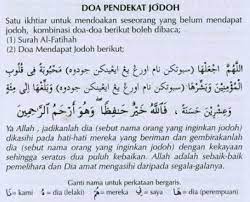 DOA PENDEKAT JODOH
Satu ikhtiar untuk mendoakan seseorang yang belum mendapat
jodoh, kombinasi doa-doa berikut boleh dibaca;
(1) Surah Al-Fatihah
(2) Doa Mendapat Jodoh berikut;
اللَّهُمَّ اجْعَلْهَا (سبوتكن نام اورڠ يڠ ايڠينكن جودوه) مَحْبُوبَةً فِي قُلُوبِ
وَعِشْرِيْنَ حَسَنَةً ، فَاللَّهُ خَيْرٌ حَفِظًا وَهُوَ أَرْحَمُ الرَّاحِمِيْنَ
Ya Allah , jadikanlah dia (sebut nama orang yang inginkan jodoh)
dikasihi pada hati-hati mereka yang beriman dan gembirakanlah
dia (sebut nama orang yang inginkan jodoh) dengan kekayaan
sehingga seratus dua puluh kebaikan. Allah adalah sebaik-baik
pemelihara dan Dia amat mengasihi daripada segala-galanya.
Ganti nama untuk perkataan bergaris.
نَا= kami هُ = dia (lelaki) هُمْ= mereka كَ= saya هَا= dia (perempuan)